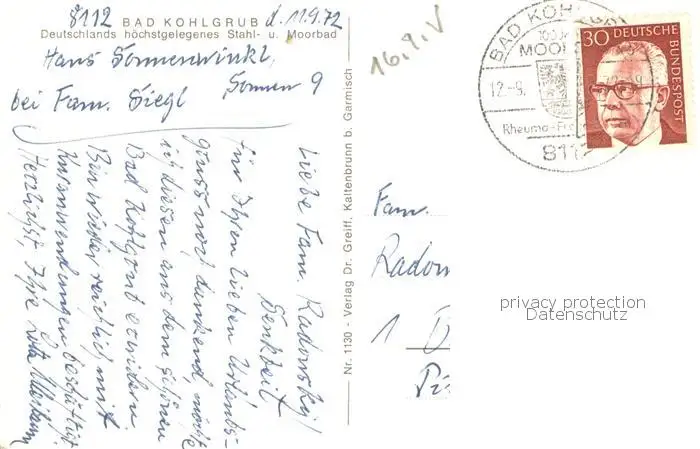 8112 BAD KOHLGRUB d. 11.9.72
Deutschlands höchstgelegenes Stahl- u. Moorbad
Hans Sonnenwinkl,
Sonnen 9
bei Fam. Siegl
16.9.V
Liebe Fam. Radowsky!
Für Ihren lieben Urlaubs-
gruss noch dankend, möchte
ich diesen aus dem schönen
Bad Kohlgrub erwidern
Bin wieder reichlich mit
Kuranwendungen beschäftigt
Herzlichst, Ihre
Nr. 1130 - Verlag Dr. Greiff, Kaltenbrunn b. Garmisch
BAD KOHLGRU
MOO
12.-9.
Rheuma-Fr
811
30 DEUTSCHE
BUNDESPOST
Fam.
Radow
1
privacy protection
Datenschutz